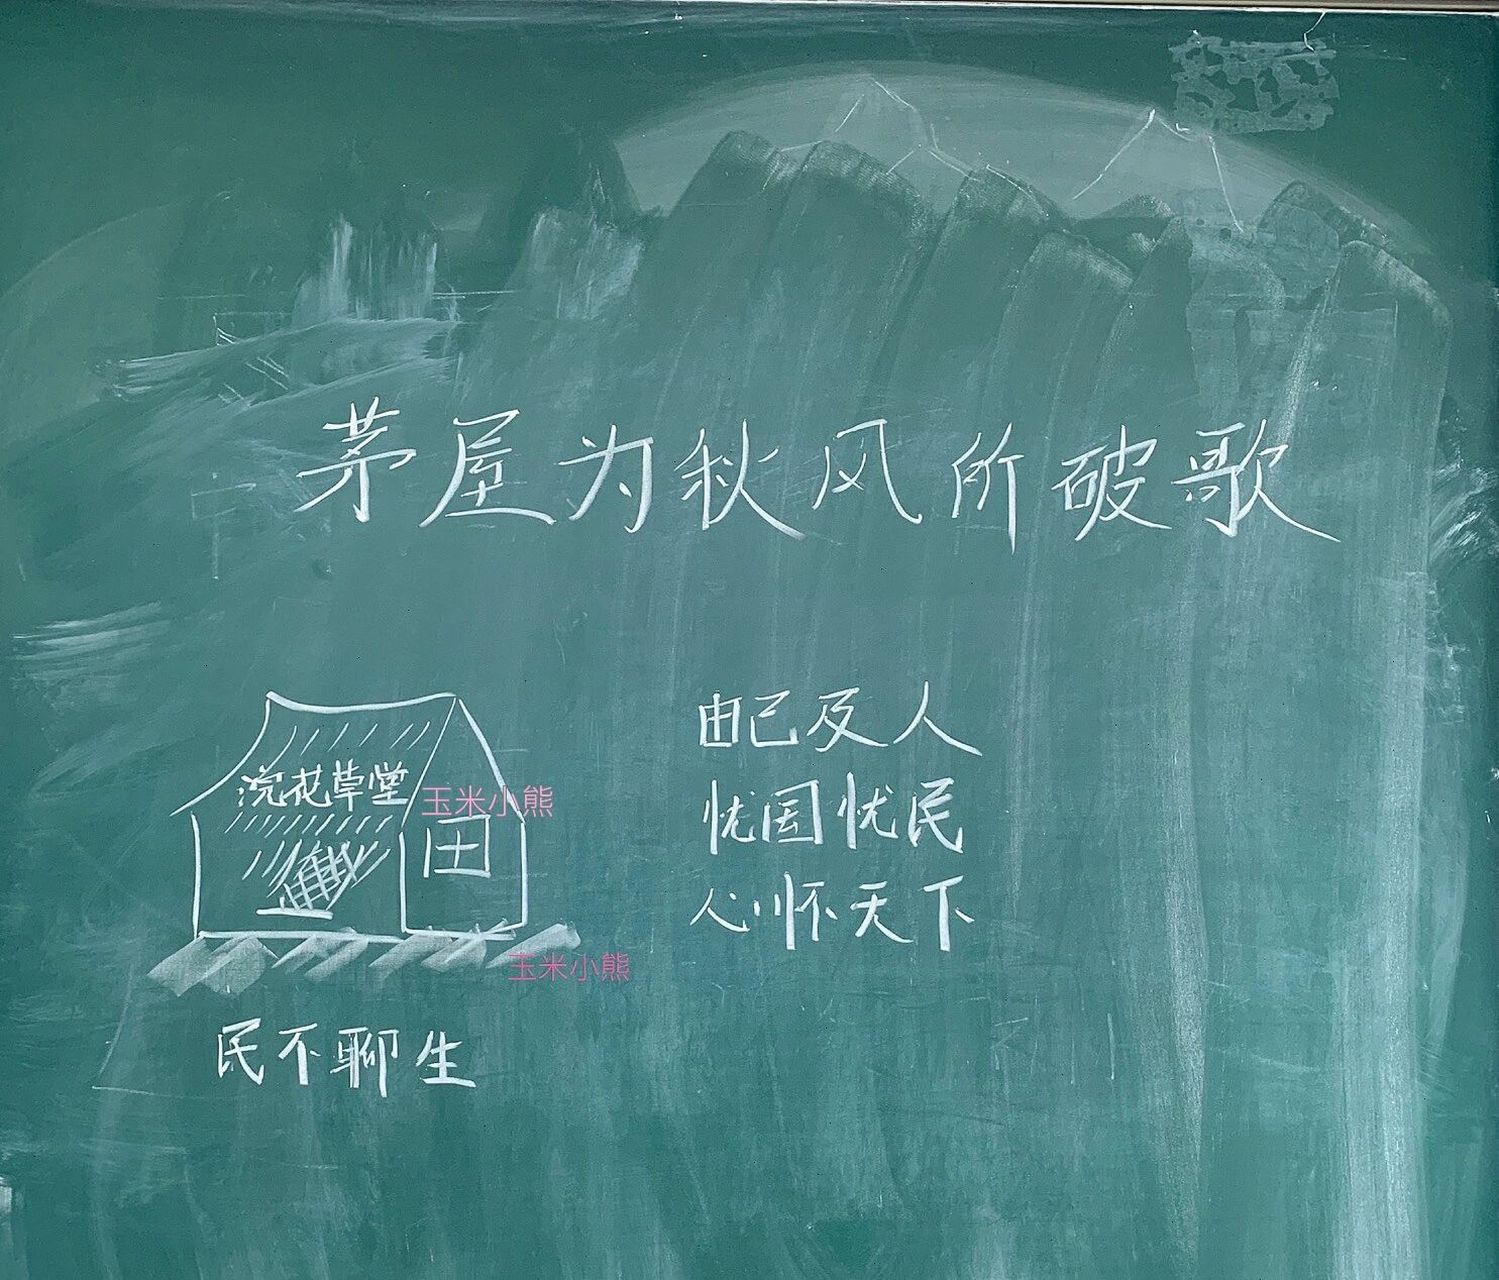 茅屋为秋风所破歌
由己及人
浣花草堂
玉米小熊
忧国忧民
心怀天下
玉米小熊
民不聊生